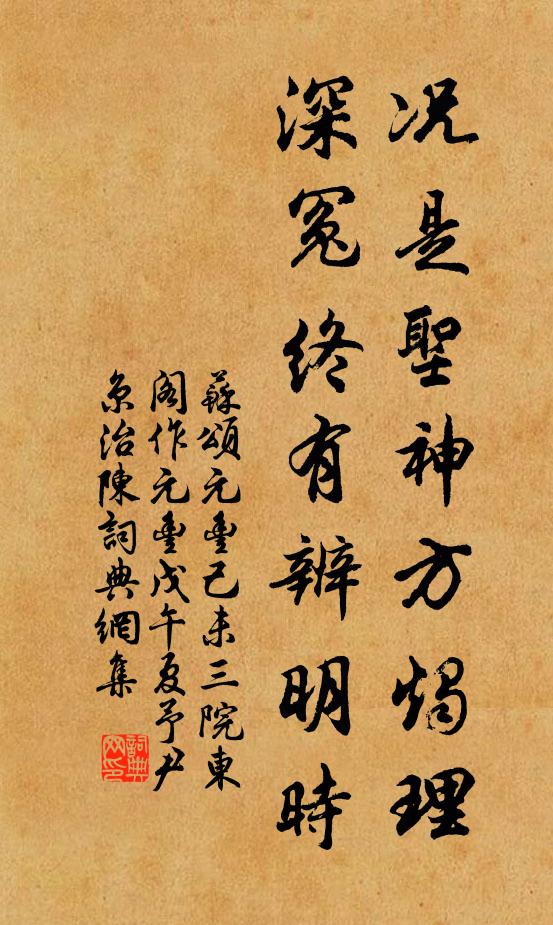 况是聖神方燭理
深冤終有辨明時
蘇頌元豐己未三院東
閣作元豐戊午夏予尹
京治陳詞典網集
詞典網印